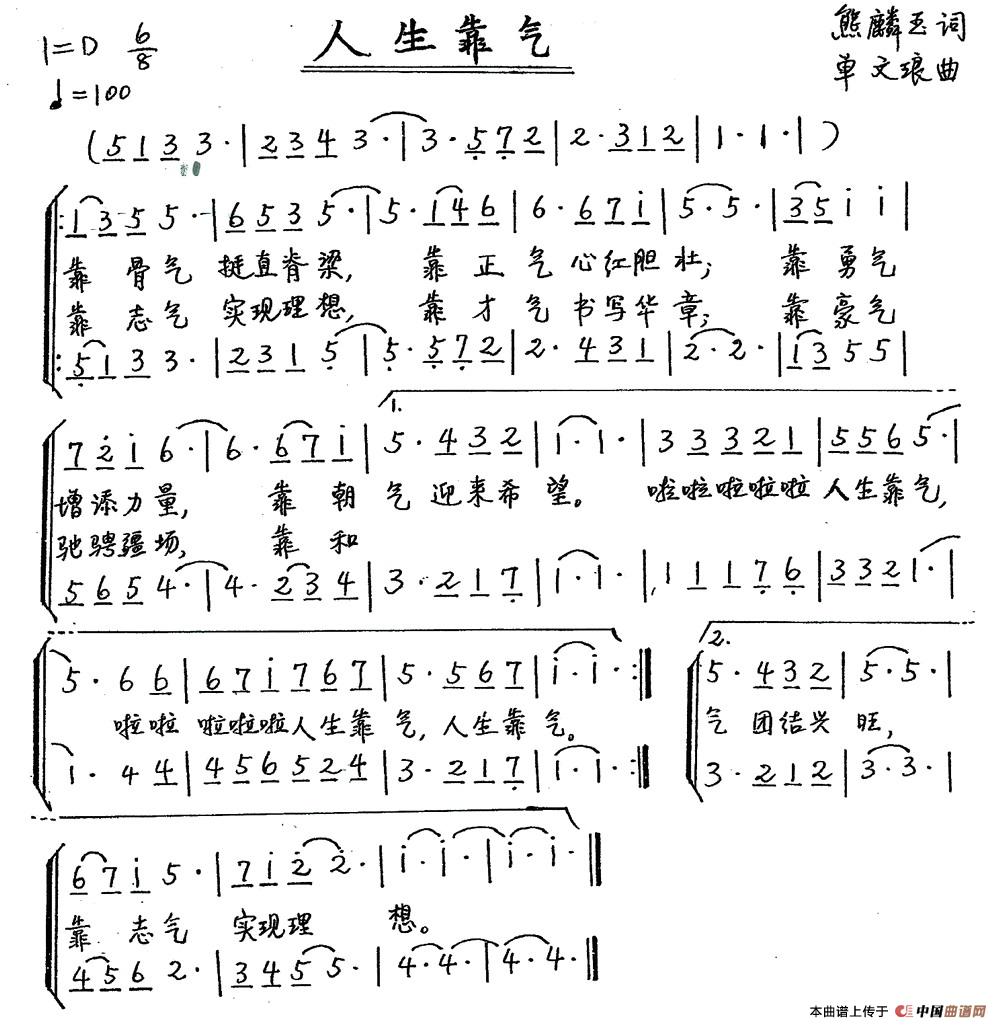 人生靠气
1=D 6/8
♩=100
熊麟玉词
单文琅曲
(5 1 3 3· | 2 3 4 3· | 3· 5 7 2 | 2· 3 1 2 | 1· 1· | )
1 3 5 5· | 6 5 3 5· | 5· 1 4 6 | 6· 6 7 i | 5· 5· | 3 5 i i |
靠骨气 挺直脊梁, 靠正气心红胆壮; 靠勇气
靠志气 实现理想, 靠才气书写华章; 靠豪气
5 1 3 3· | 2 3 1 5· | 5· 5 7 2 | 2· 4 3 1 | 2· 2· | 1 3 5 5 |
1.
7 2 i 6· | 6· 6 7 i | 5· 4 3 2 | 1· 1· | 3 3 3 2 1 | 5 5 6 5· |
增添力量, 靠朝气迎来希望。 啦啦啦啦啦人生靠气,
驰骋疆场, 靠和
5 6 5 4· | 4· 2 3 4 | 3· 2 1 7 | 1· 1· | 1 1 1 7 6 | 3 3 2 1· |
2.
5· 6 6 | 6 7 i 7 6 7 | 5· 5 6 7 | i· i· :‖ 5· 4 3 2 | 5· 5· |
啦啦 啦啦啦人生靠气,人生靠气。 气团结兴旺,
1· 4 4 | 4 5 6 5 2 4 | 3· 2 1 7 | 1· 1· :‖ 3· 2 1 2 | 3· 3· |
6 7 i 5· | 7 i 2 2· | i· i· | i· i· ‖
靠志气 实现理想。
4 5 6 2· | 3 4 5 5· | 4· 4· | 4· 4· ‖
本曲谱上传于 中国曲谱网